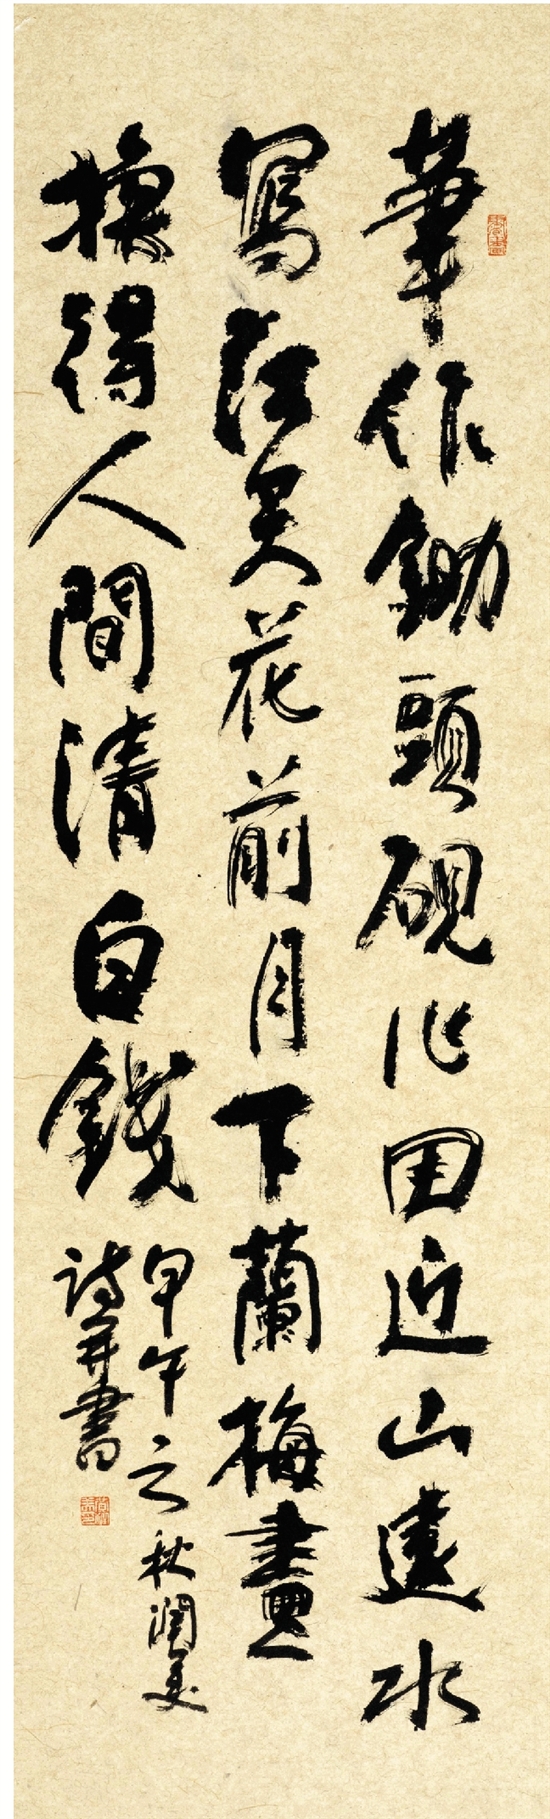 筆作鋤頭硯作田近山遠水
寫花前月下蘭梅畫
換得人間清白錢
甲午之秋潤美
詩并書